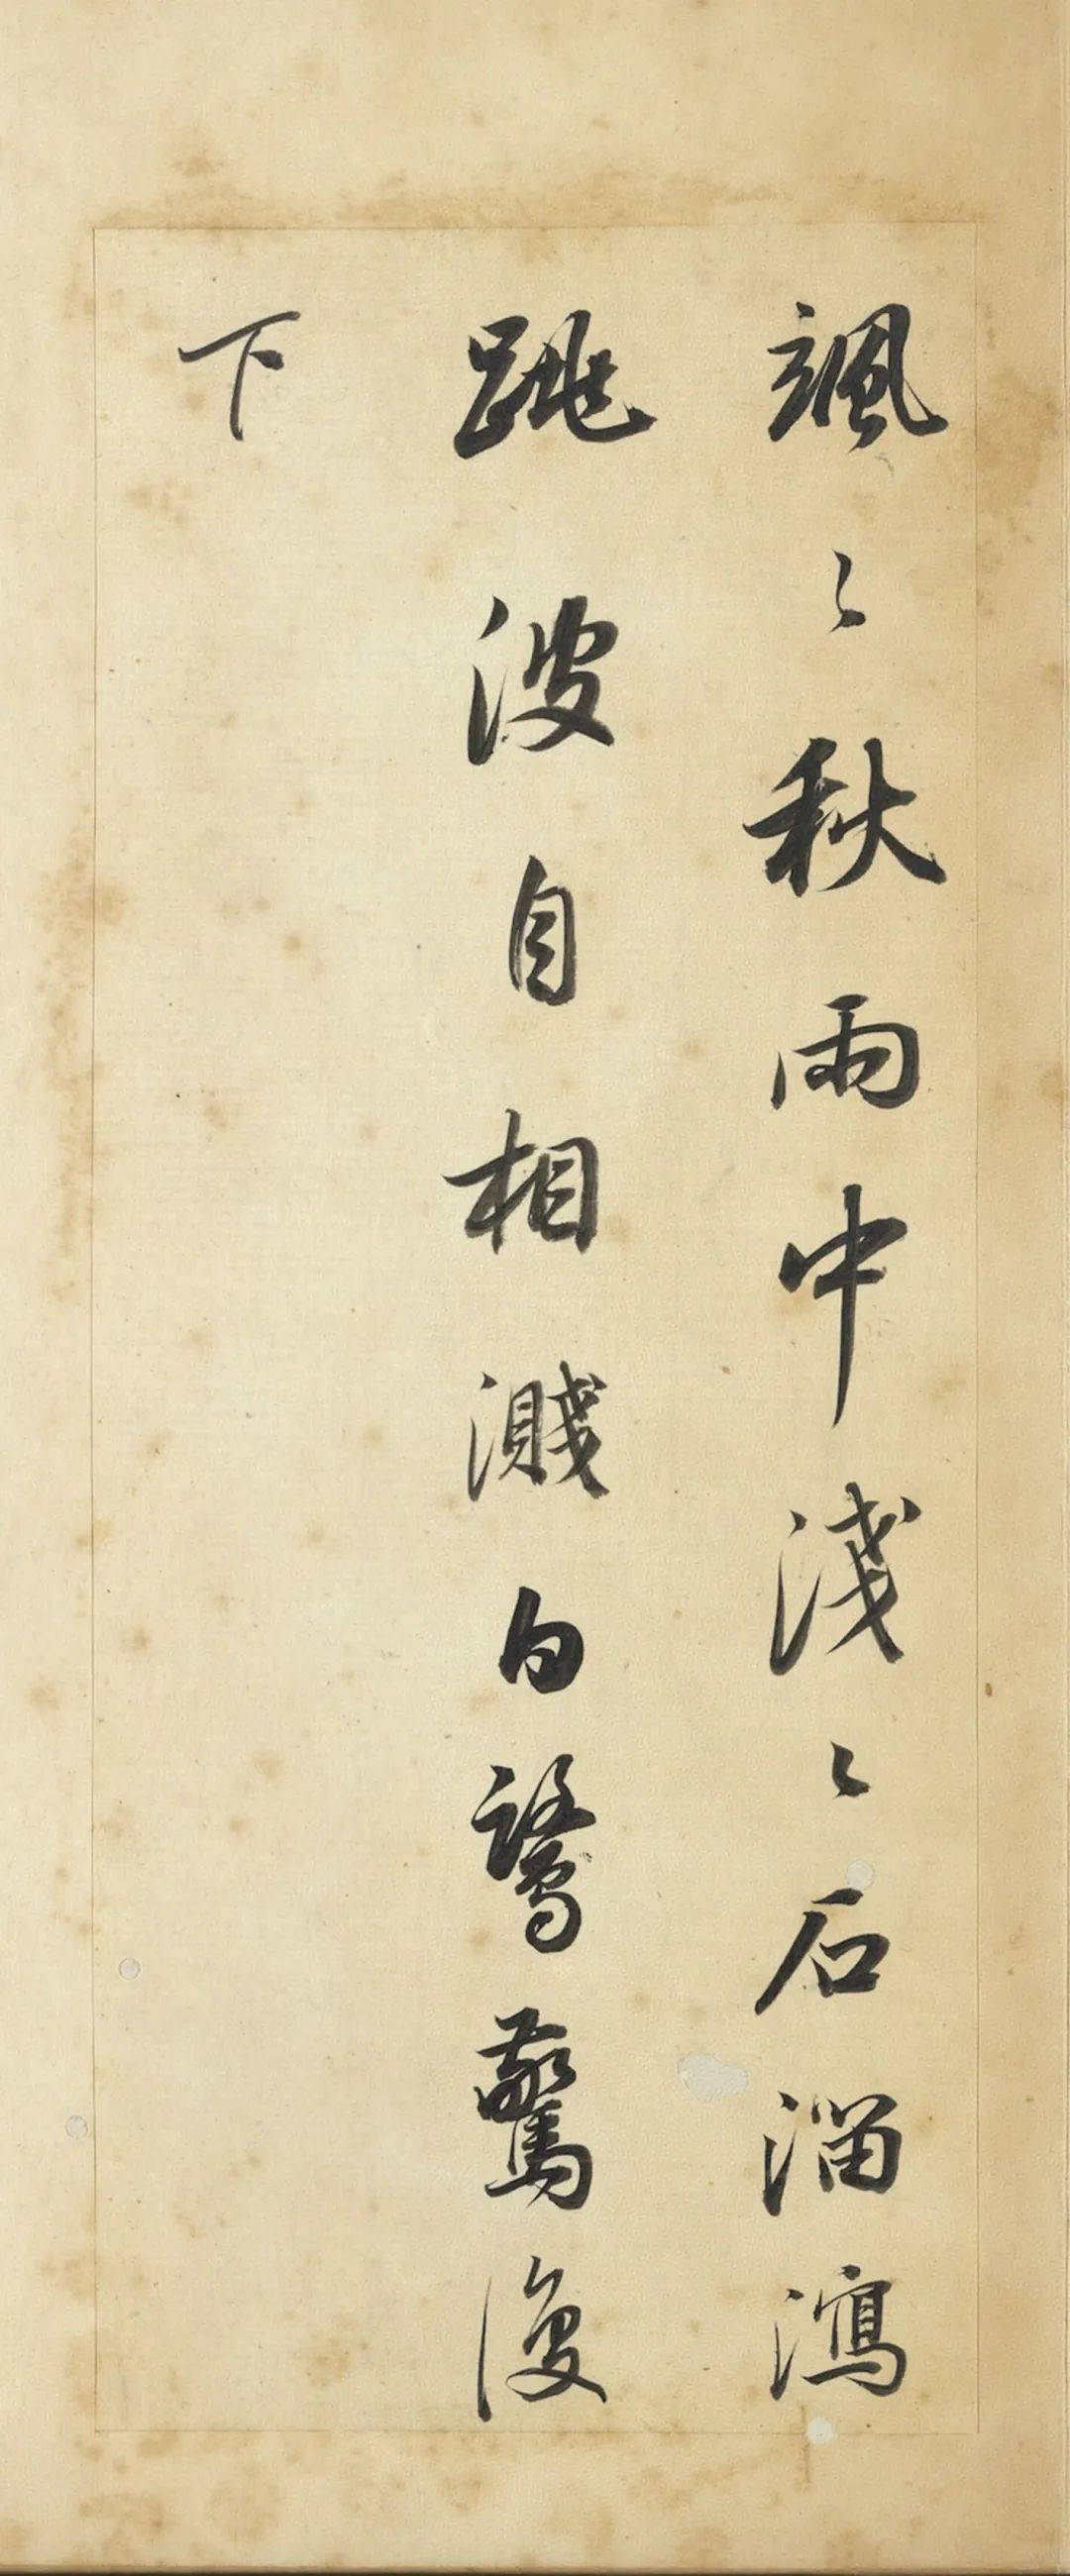 颯〻秋雨中淺〻石溜瀉
跳波自相濺白鷺驚復
下